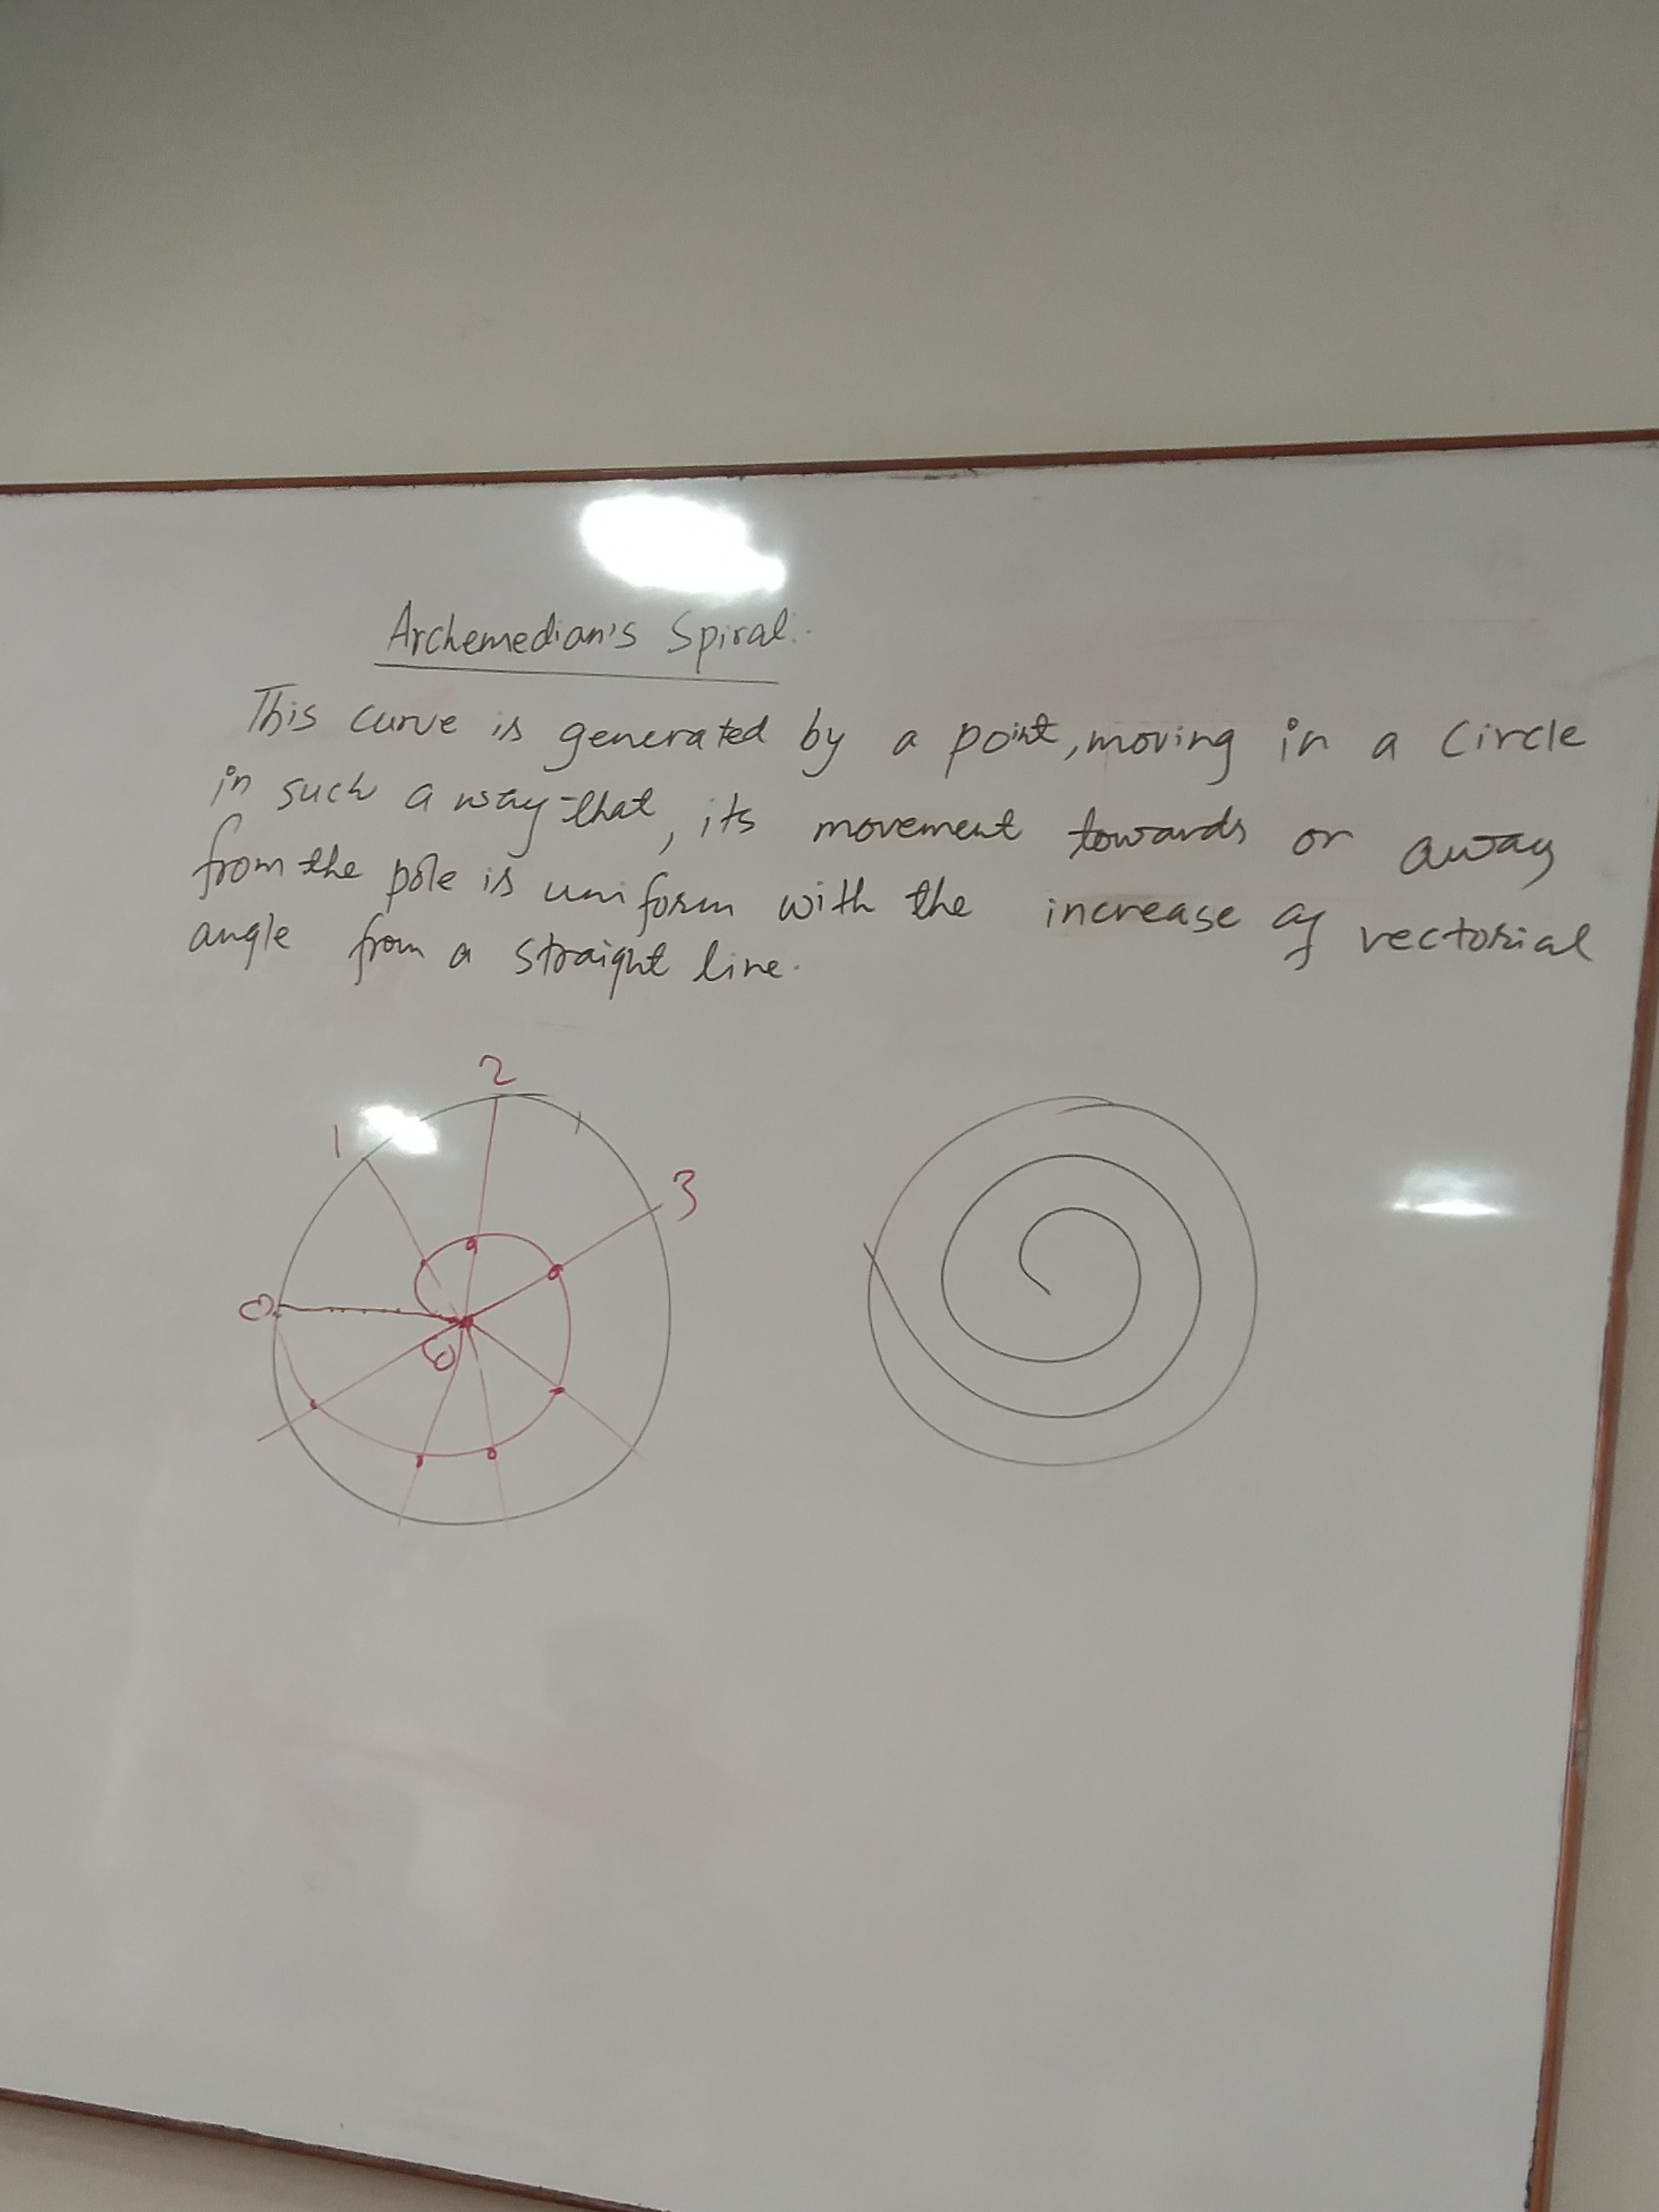 Archemedian's Spiral:-
This curve is generated by a point, moving in a circle
in such a way that, its movement towards or away
from the pole is uniform with the increase of vectorial
angle from a straight line.
2
1
3
0
O